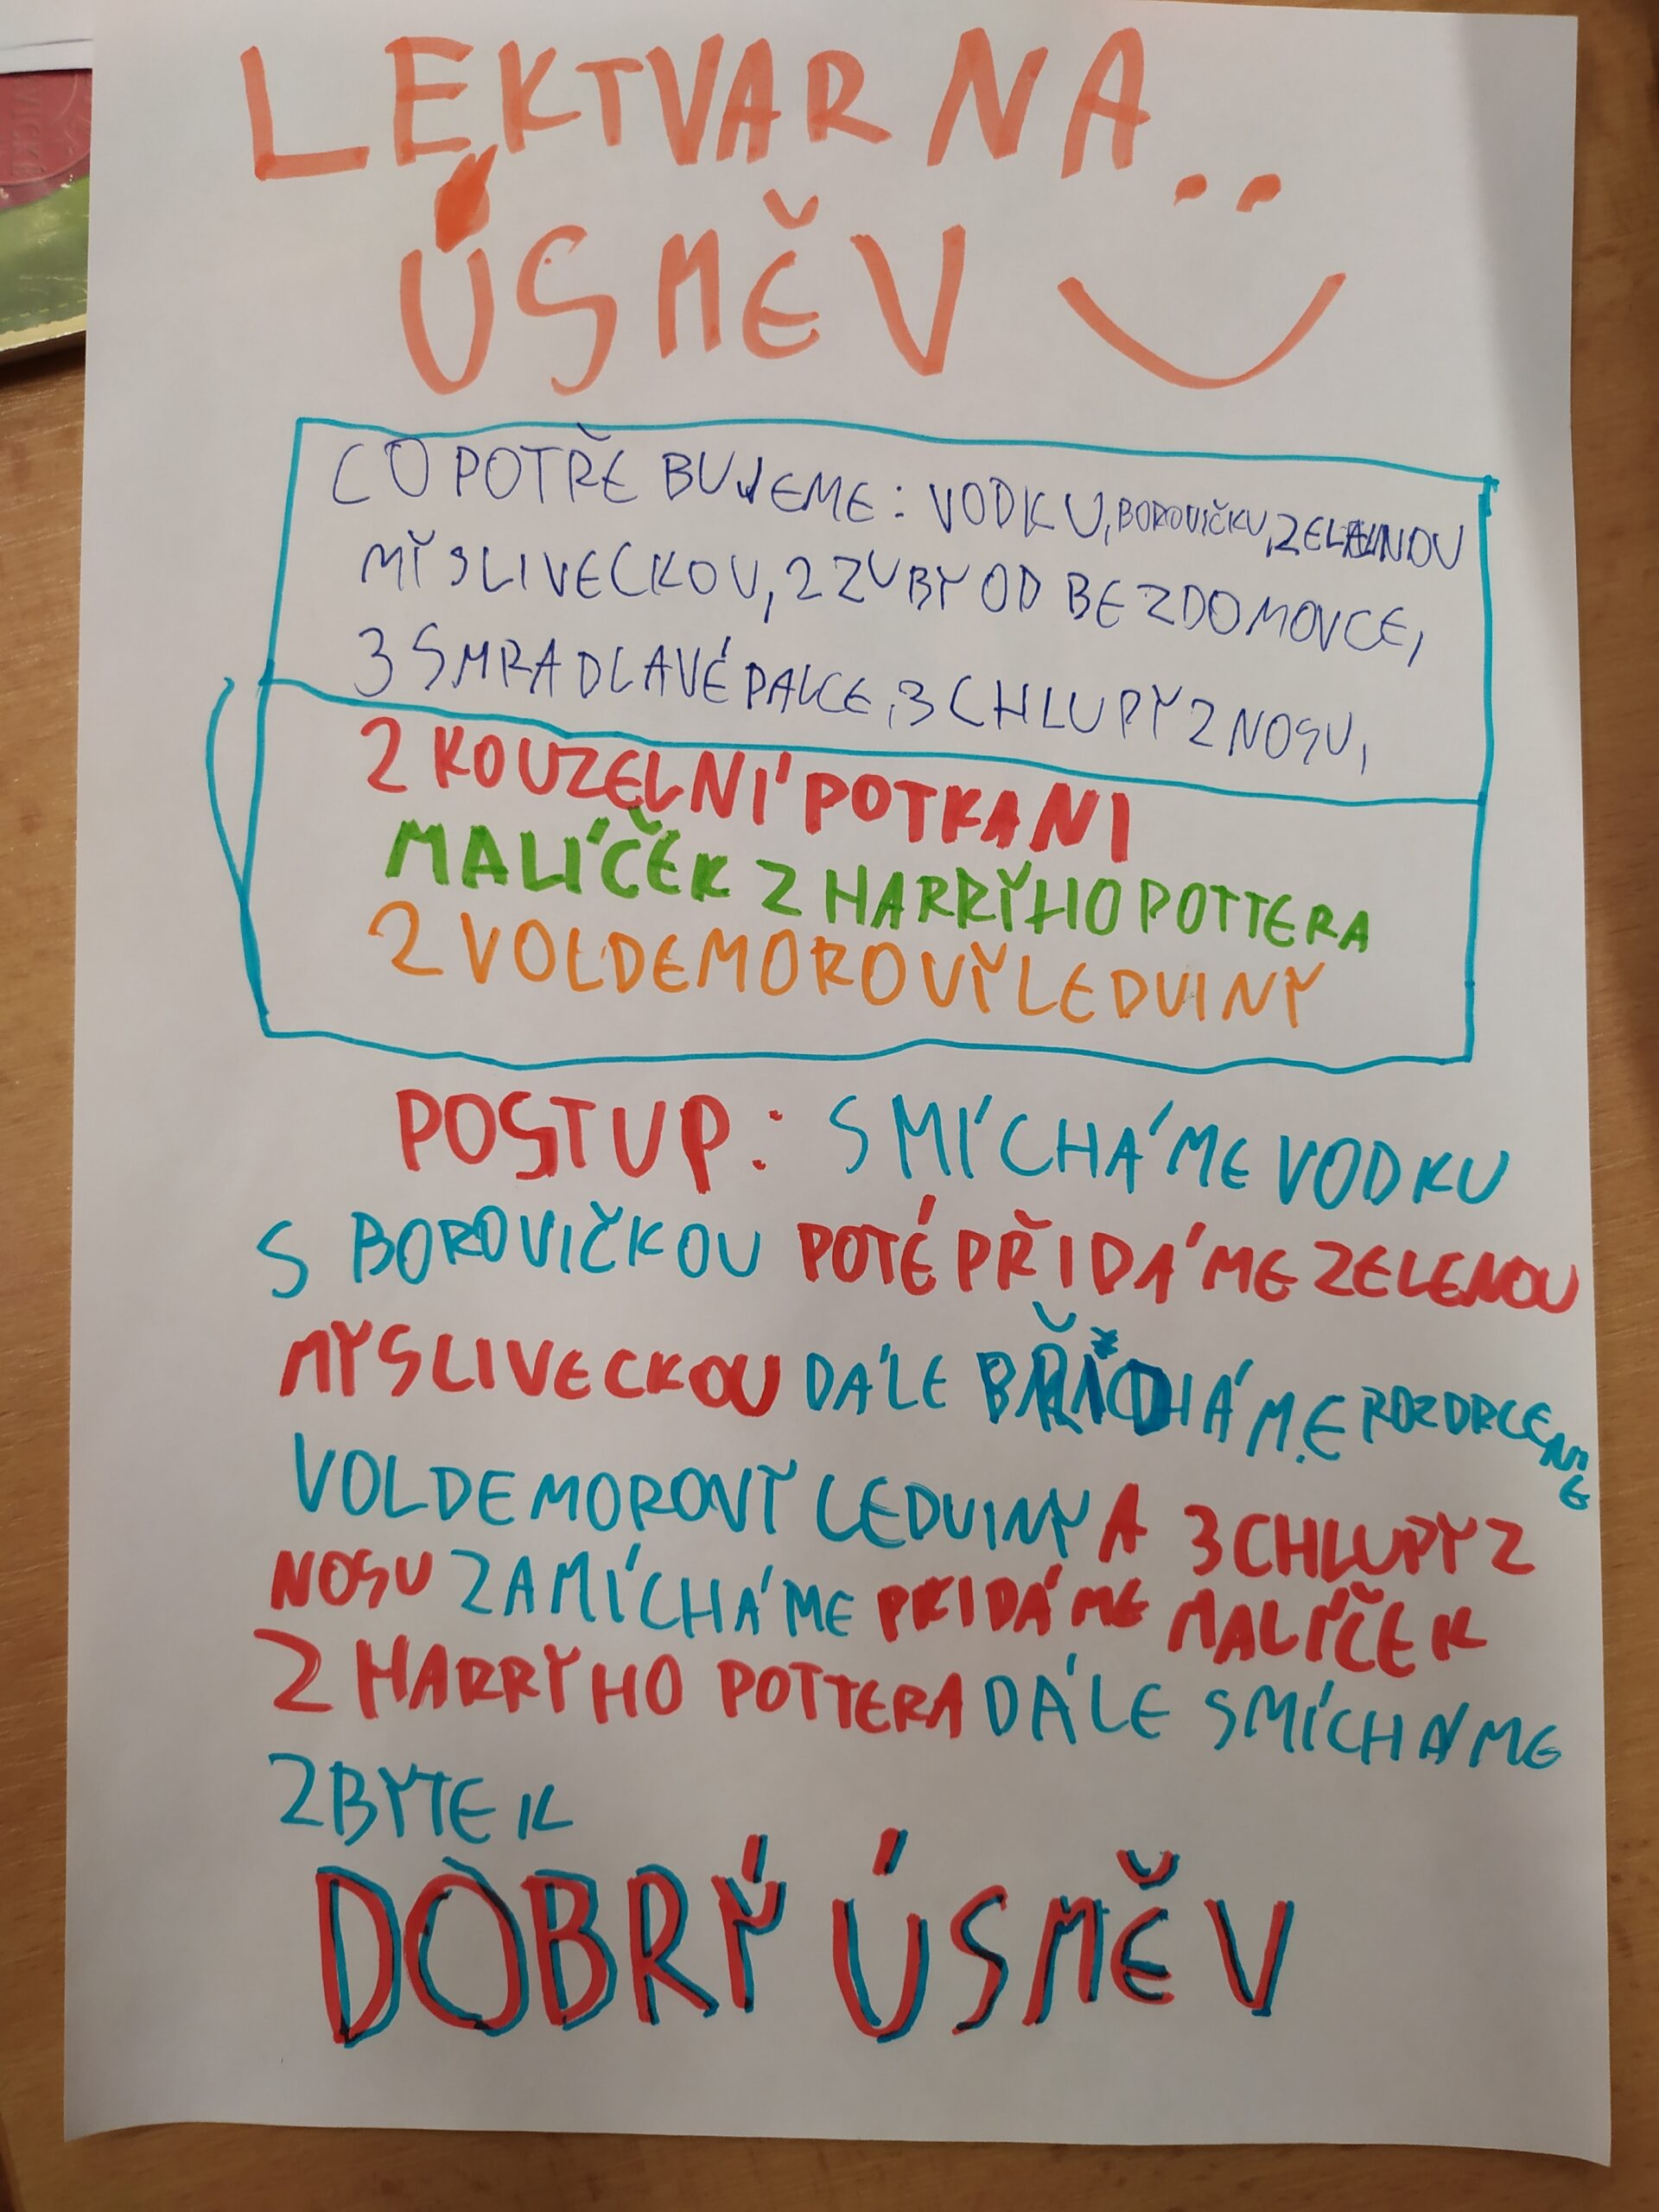 LEKTVAR NA
ÚSMĚV
CO POTŘEBUJEME: VODKU, BOROVIČKU, ZELENOU
MYSLIVECKOU, 2 ZUBY OD BEZDOMOVCE,
3 SMRADLAVÉ PALCE, 3 CHLUPY Z NOSU,
2 KOUZELNÍ POTKANI
MALÍČEK Z HARRYHO POTTERA
2 VOLDEMOROVY LEDVINY
POSTUP: SMÍCHÁME VODKU
S BOROVIČKOU POTÉ PŘIDÁME ZELENOU
MYSLIVECKOU DÁLE ROZDRCENÉ
VOLDEMOROVY LEDVINY A 3 CHLUPY Z
NOSU ZAMÍCHÁME PŘIDÁME MALÍČEK
Z HARRYHO POTTERA DÁLE SMÍCHÁME
ZBYTEK
DOBRÝ ÚSMĚV